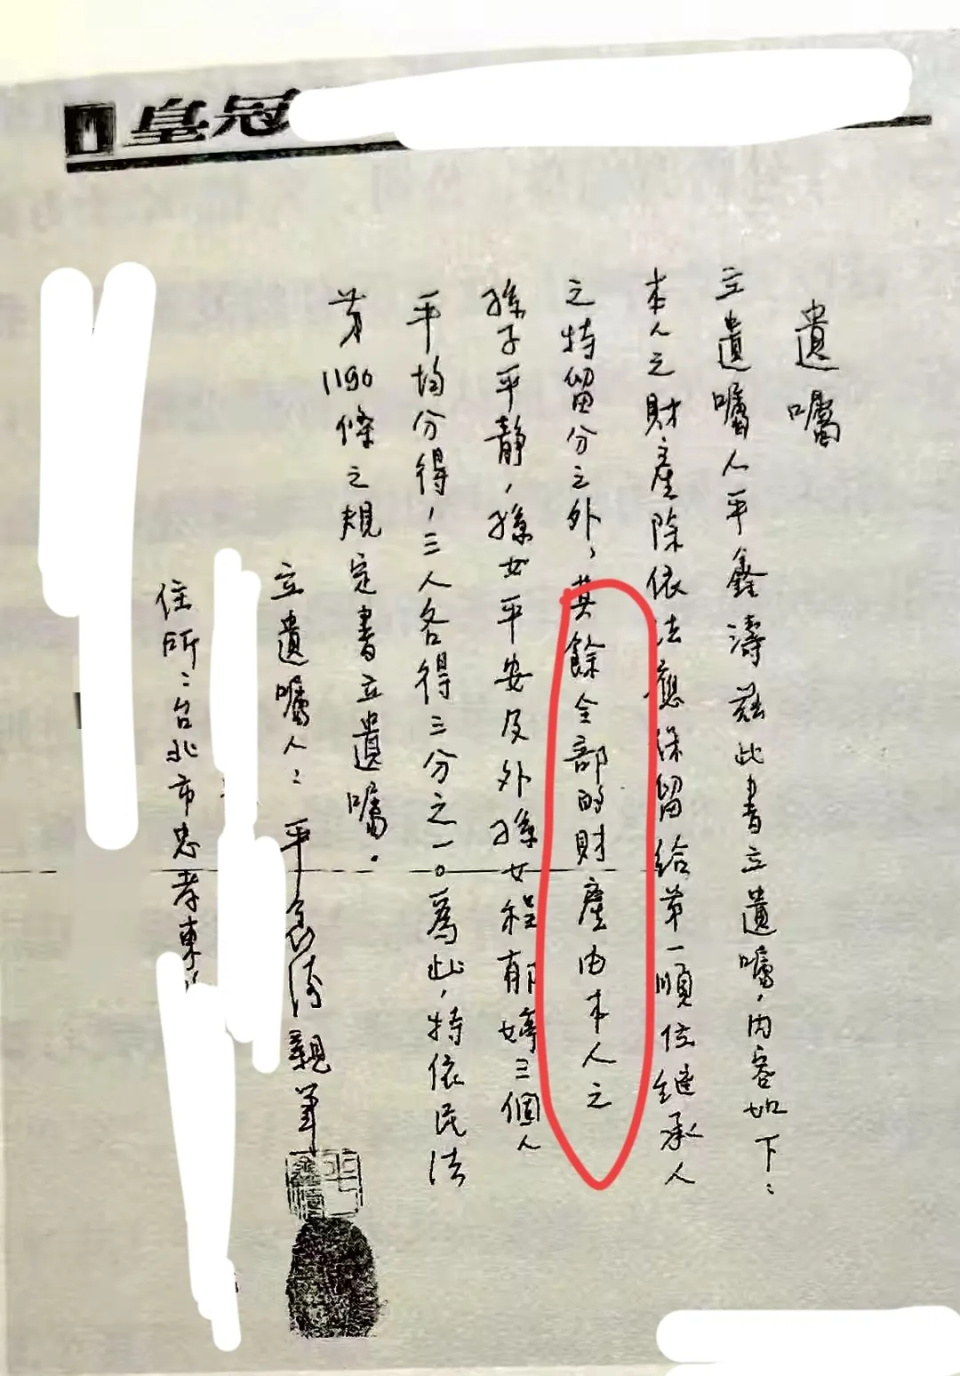 皇冠
遺囑
立遺囑人平鑫濤茲此書立遺囑，內容如下：
本人之財產除依法應保留給第一順位繼承人
之特留分之外，其餘全部的財產由本人之
孫子平靜，孫女平安及外孫女程郁婷三個人
平均分得，三人各得三分之一。為此，特依民法
第1190條之規定書立遺囑。
立遺囑人：平鑫濤親筆
住所：台北市忠孝東